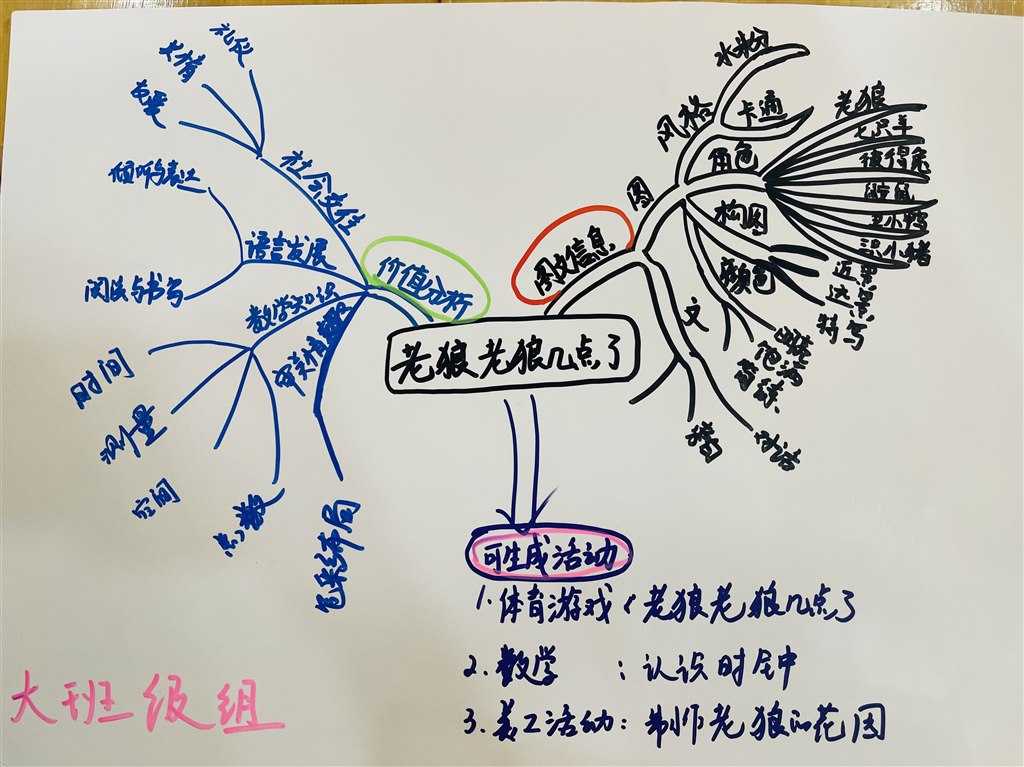 老狼老狼几点了
价值分析
社会交往
礼仪
友情
友爱
语言发展
倾听与表达
阅读与书写
数学知识
时间
测量
空间
点数
审美情趣
色彩布局
图文信息
图
风格
水粉
卡通
角色
老狼
七只羊
彼得兔
鼹鼠
丑小鸭
三只小猪
构图
近景
远景
特写
颜色
饱满
文
独白
对话
可生成活动
1.体育游戏:老狼老狼几点了
2.数学:认识时钟
3.美工活动:制作老狼的花园
大班级组